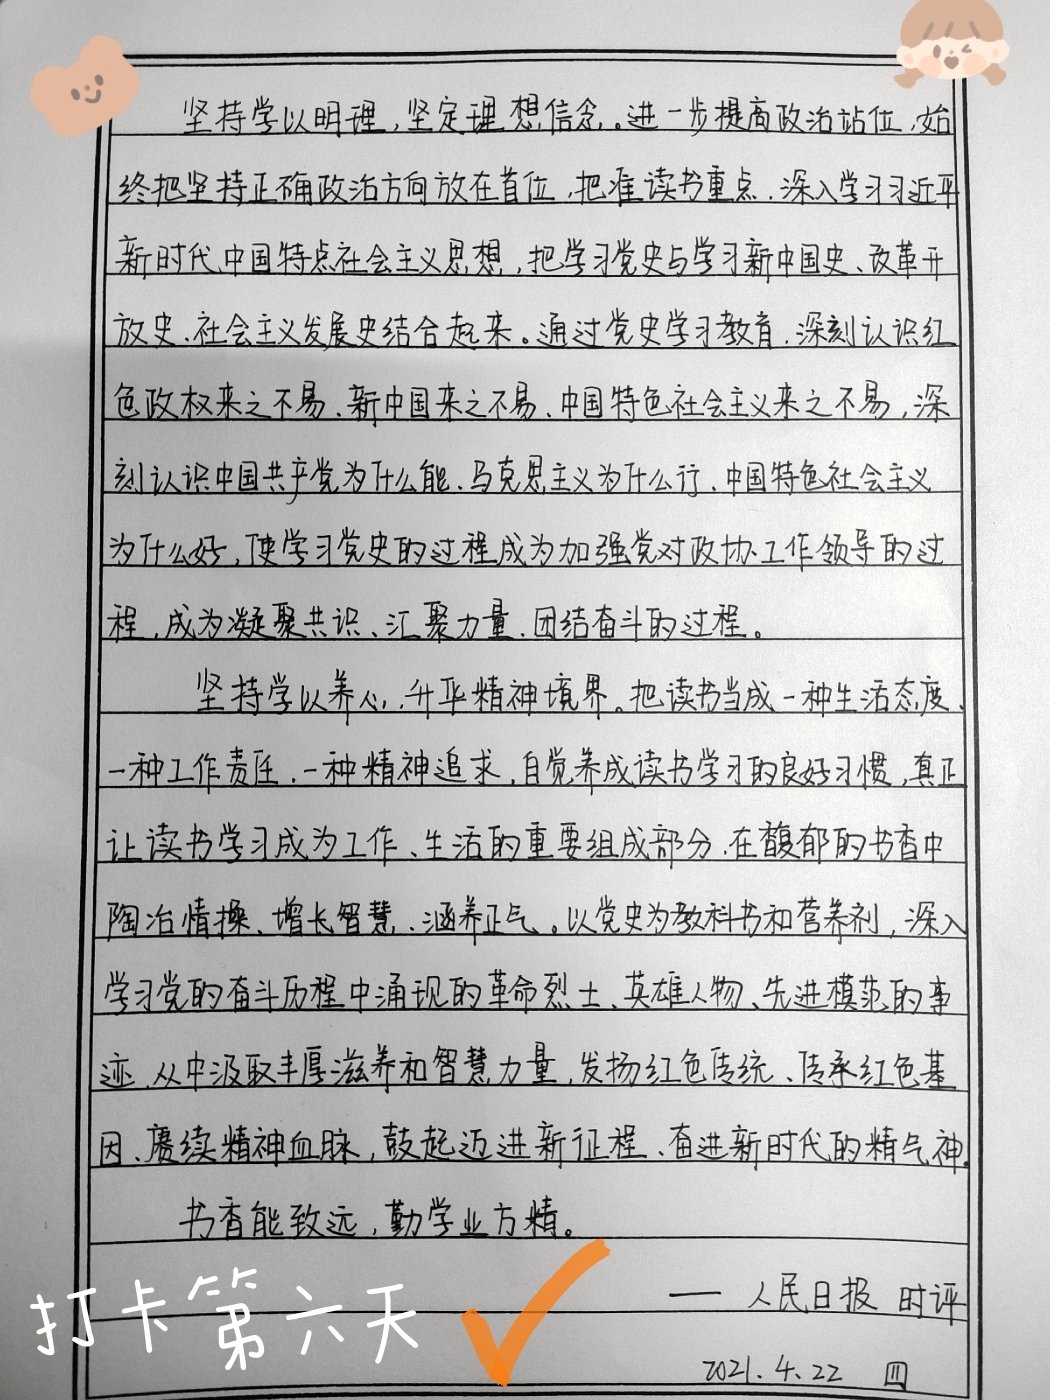 坚持学以明理，坚定理想信念。进一步提高政治站位，始
终把坚持正确政治方向放在首位，把准读书重点，深入学习习近平
新时代中国特点社会主义思想，把学习党史与学习新中国史、改革开
放史、社会主义发展史结合起来。通过党史学习教育，深刻认识红
色政权来之不易、新中国来之不易、中国特色社会主义来之不易，深
刻认识中国共产党为什么能、马克思主义为什么行、中国特色社会主义
为什么好，使学习党史的过程成为加强党对政协工作领导的过
程，成为凝聚共识、汇聚力量、团结奋斗的过程。
坚持学以养心，升华精神境界。把读书当成一种生活态度、
一种工作责任、一种精神追求，自觉养成读书学习的良好习惯，真正
让读书学习成为工作、生活的重要组成部分，在馥郁的书香中
陶冶情操、增长智慧、涵养正气。以党史为教科书和营养剂，深入
学习党的奋斗历程中涌现的革命烈士、英雄人物、先进模范的事
迹，从中汲取丰厚滋养和智慧力量，发扬红色传统、传承红色基
因、赓续精神血脉，鼓起迈进新征程、奋进新时代的精气神。
书香能致远，勤学业方精。
—— 人民日报 时评
打卡第六天
2021.4.22 四